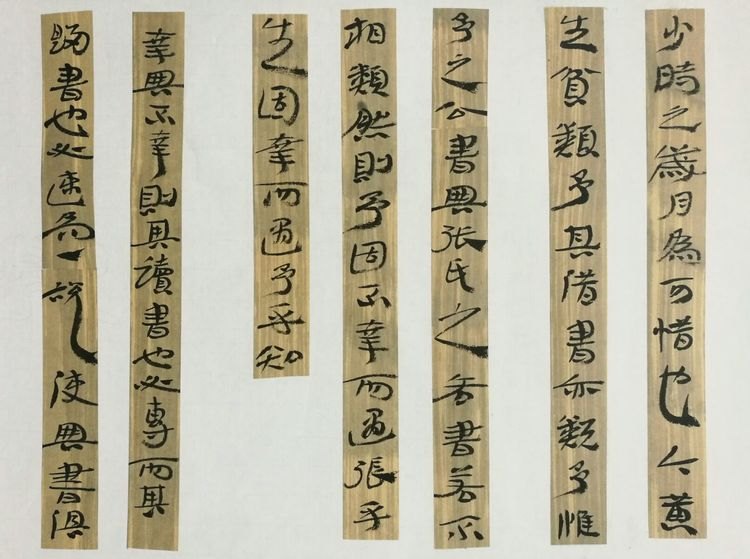 少時之歲月為可惜也今黃
生貧類予其借書亦類予惟
予之公書與張氏之吝書若不
相類然則予固不幸而遇張乎
生固幸而遇予乎知
幸與不幸則其讀書也必專而其
歸書也必速為一說使與書俱